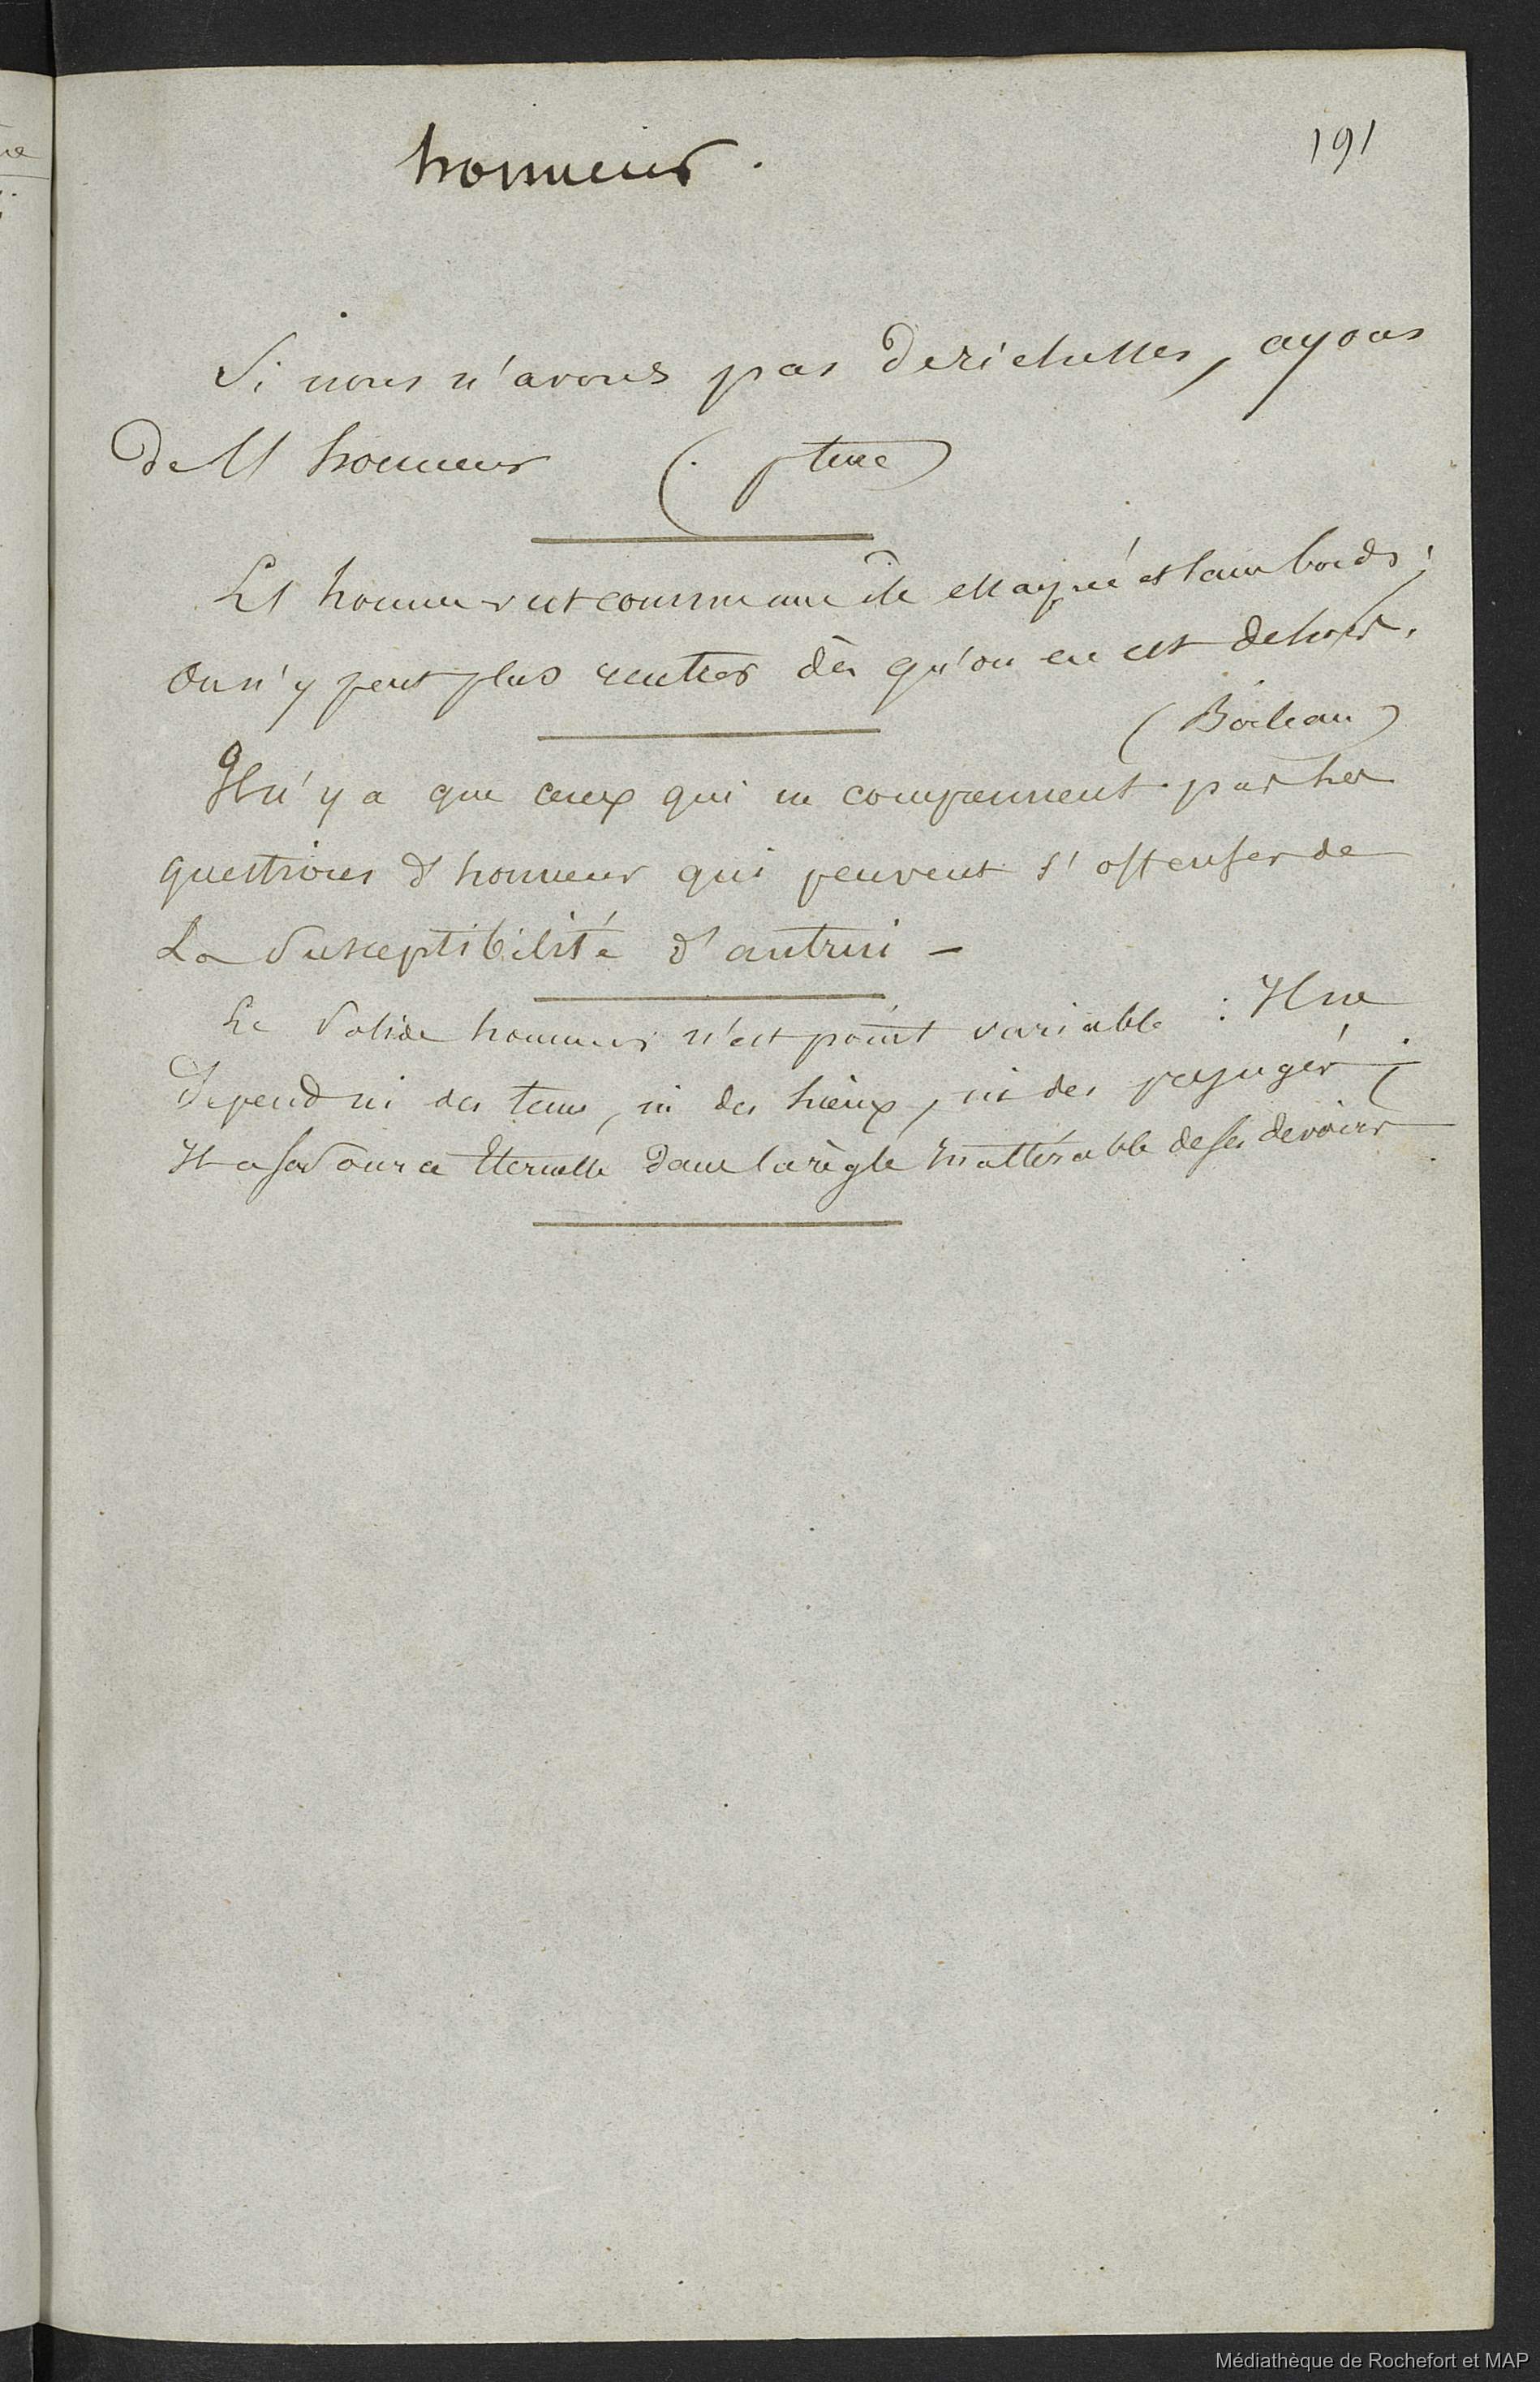 191
honneur.
Si nous n'avons pas de richesses, ayons
de l'honneur
L'honneur est comme une île escarpée et sans bords ;
On n'y peut plus rentrer dès qu'on en est dehors.
(Boileau)
Il n'y a que ceux qui ne comprennent pas les
questions d'honneur qui peuvent s'offenser de
La Susceptibilité d'autrui -
Le Solide honneur n'est point variable : Il ne
Dépend ni des tems, ni des lieux, ni des préjugés ;
Il a sa Source Eternelle dans la règle inaltérable de ses devoirs
Médiathèque de Rochefort et MAP